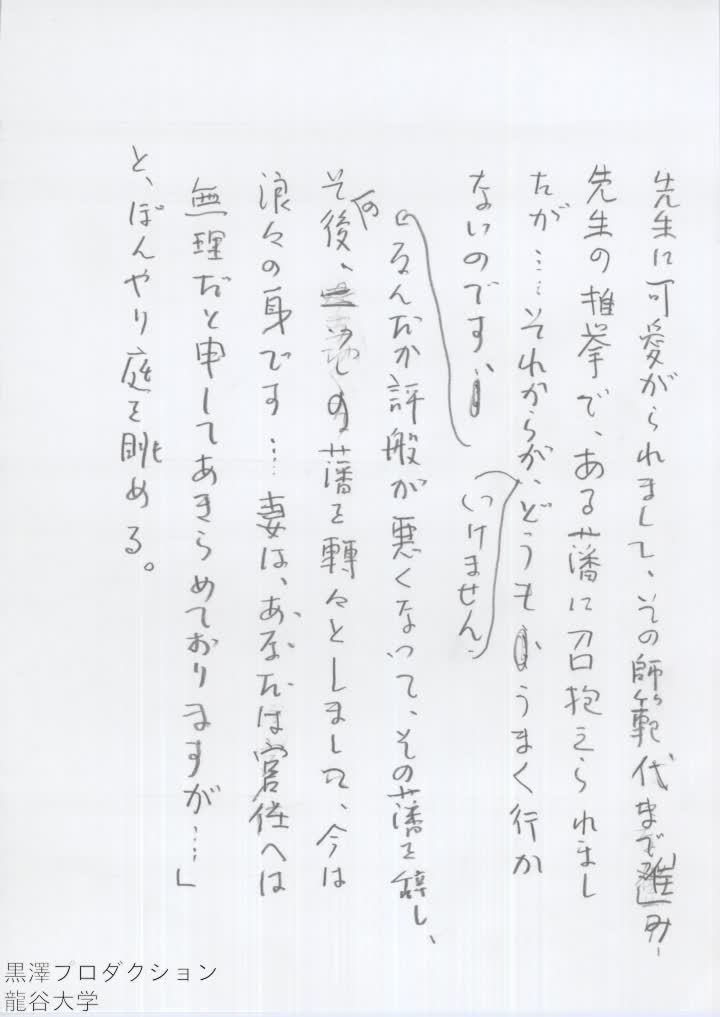 先生に可愛がられまして、その師範代まで進み
先生の推挙で、ある藩に召抱えられまし
たが……それからが、どうもうまく行か
ないのです
いけません
なんだか評般が悪くなって、その藩を辞し、
その後、藩を轉々としまして、今は
浪々の身です…妻は、あなたは宮仕へは
無理だと申してあきらめておりますが…」
と、ぼんやり庭を眺める。
黒澤プロダクション
龍谷大学